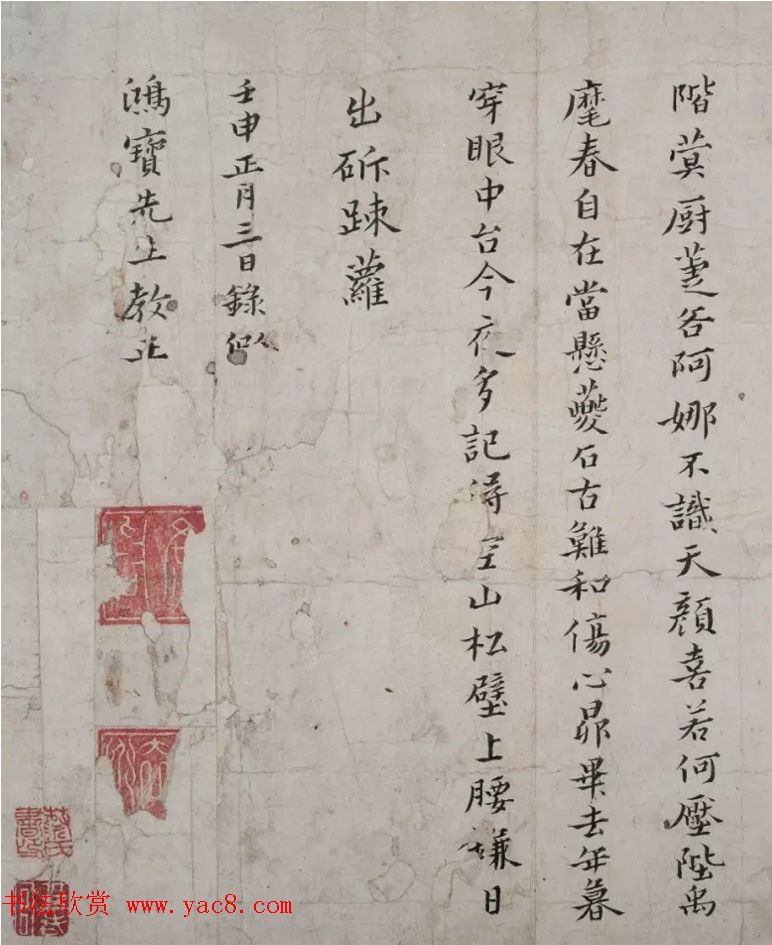 階蓂厨萐各阿娜不識天顏喜若何壓陛禹
麾春自在當懸夔石古難和傷心昴畢去年暮
穿眼中台今夜多記得空山松壁上腰鎌日
出斫踈蘿
壬申正月三日錄似
鴻寶先生教正
书法欣赏 www.yac8.com